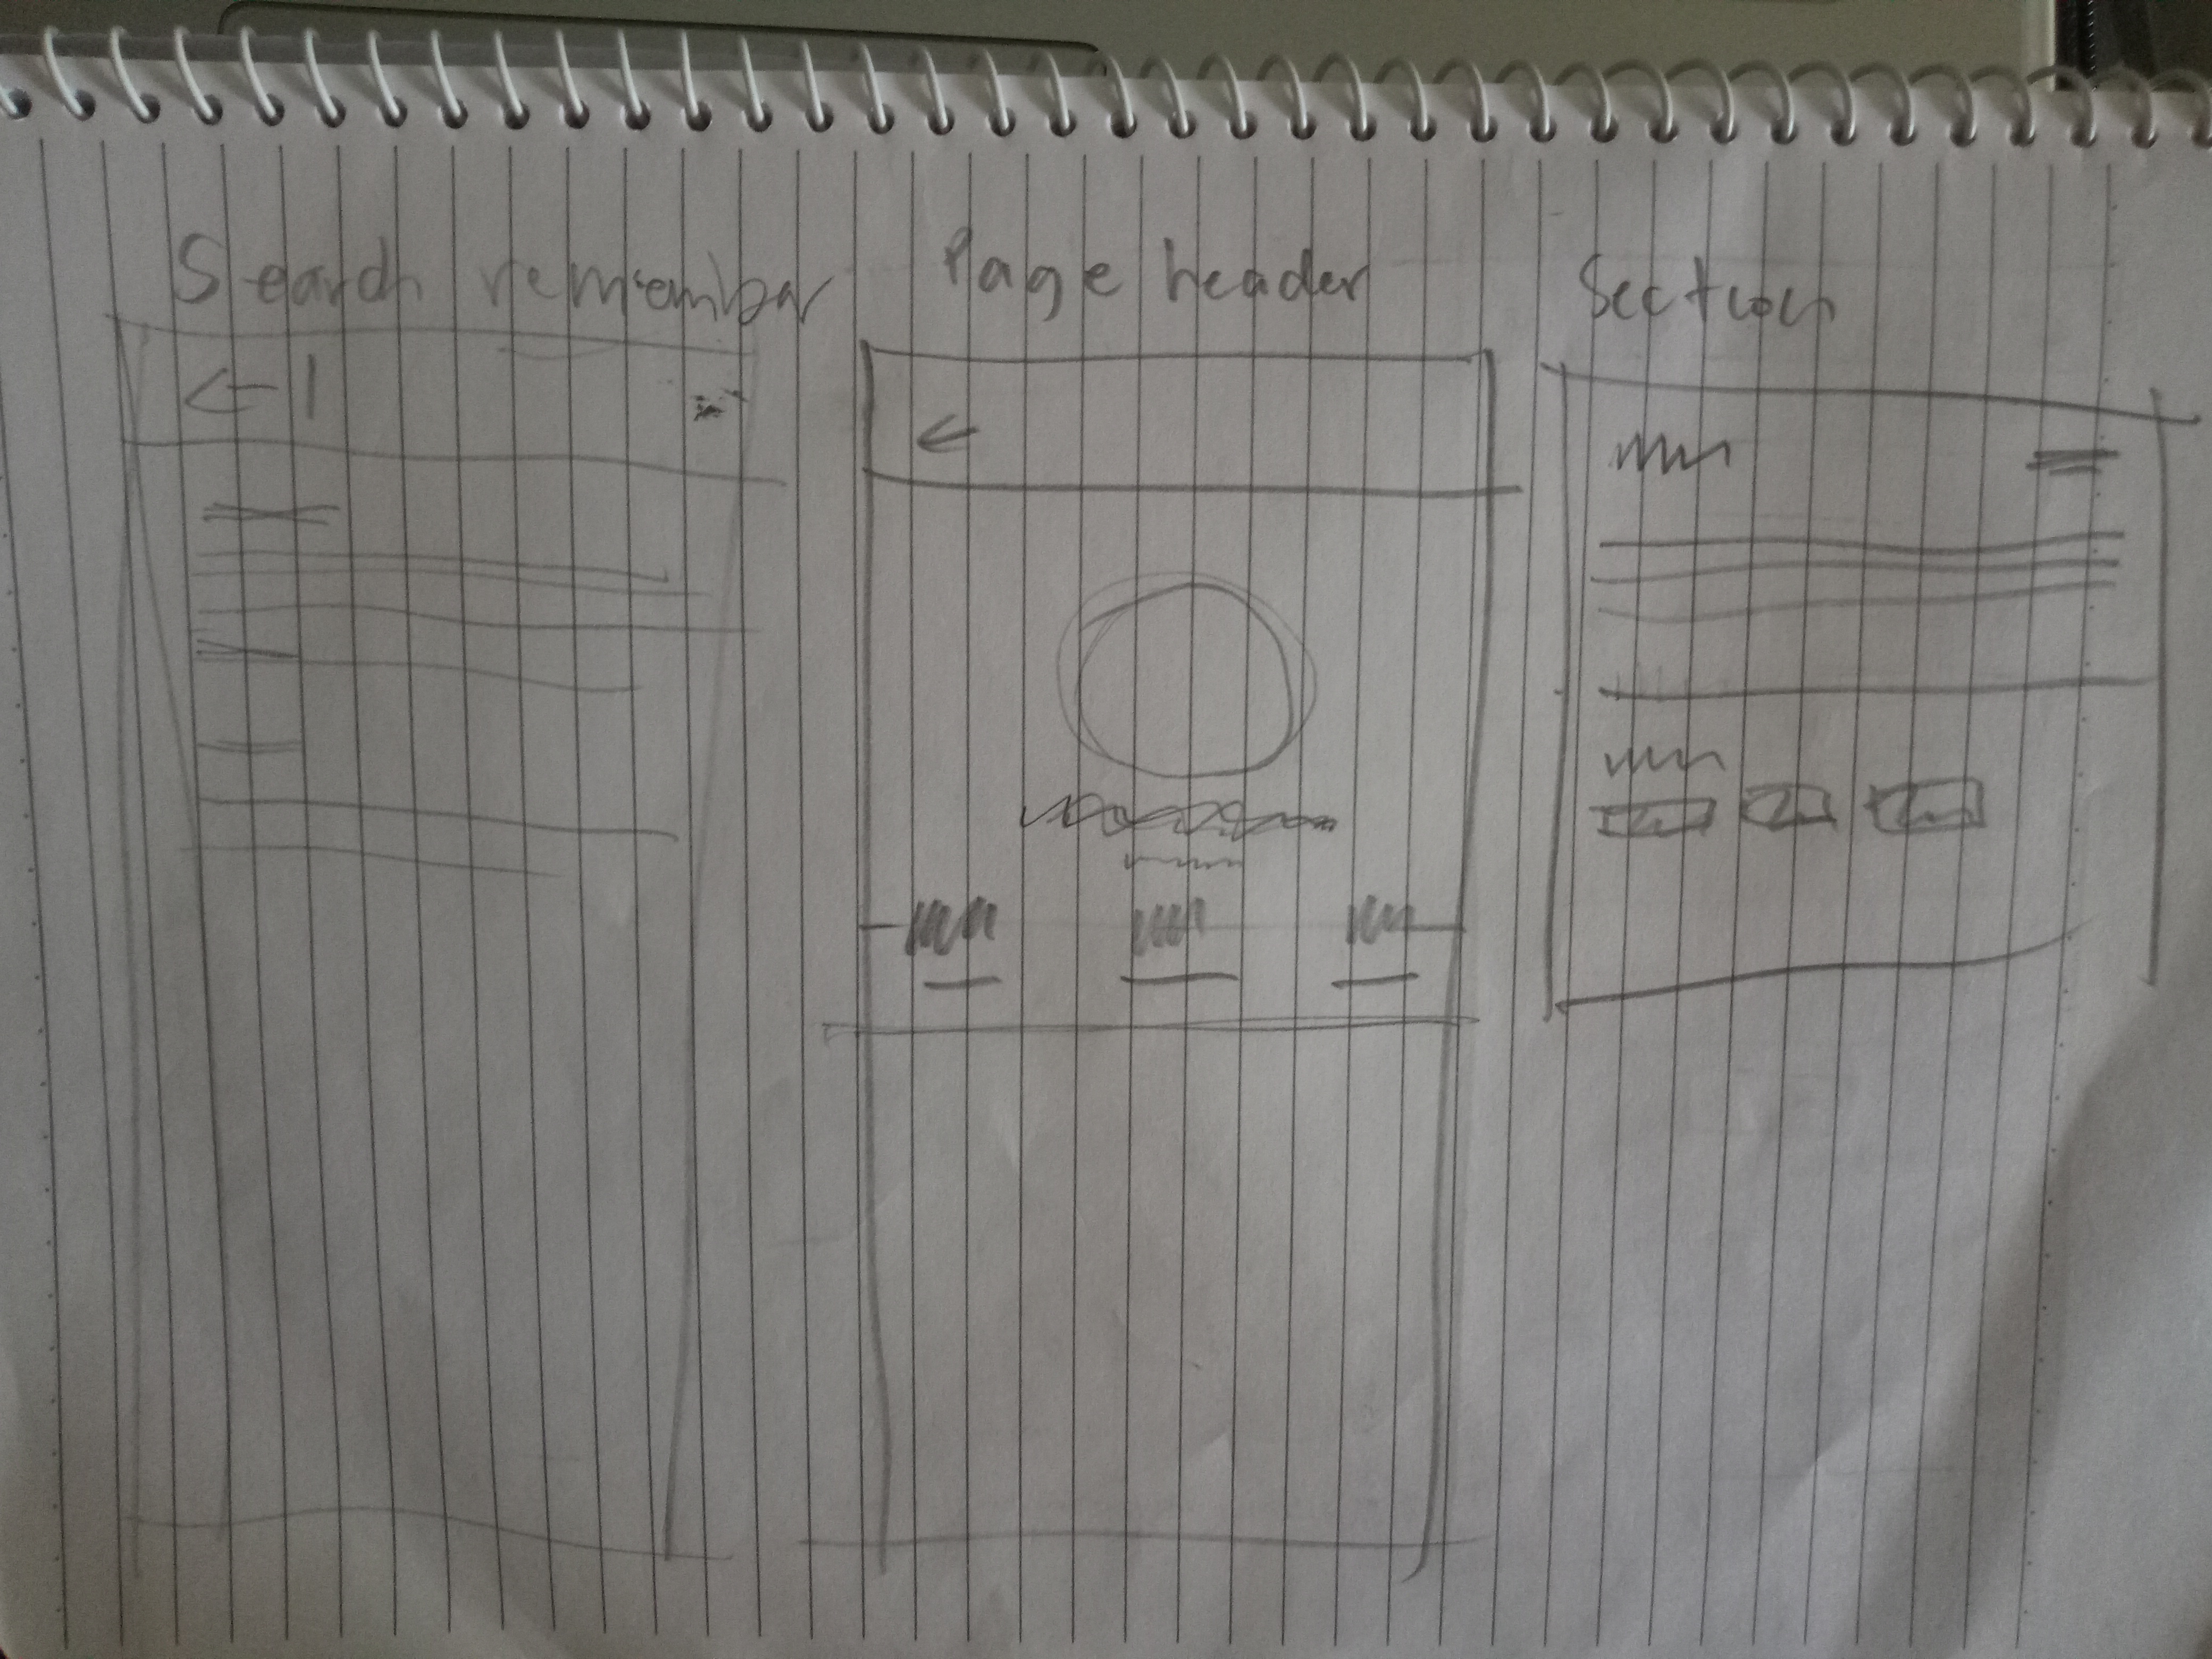 Search remember
Page header
Section